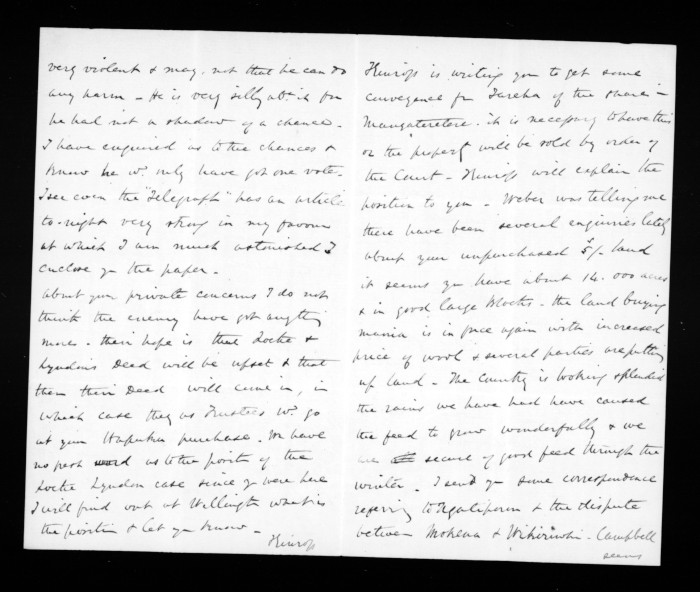 very violent & may. not that he can do
any harm - He is very silly abt. it for
he had not a shadow of a chance -
I have enquired as to the chances &
know he wd. only have got one vote -
I see even the "Telegraph" has an article
to-night very strong in my favour
at which I am much astonished I
enclose you the paper -
About your private concerns I do not
think the enemy have got anything
more - their hope is that Locke &
Lyndon's Deed will be upset & that
then their Deed will come in, in
which case they as Trustees wd. go
at your purchase. We have
no fresh word as to the position of the
Locke Lyndon case since you were here
I will find out at Wellington what is
the position & let you know -
Kinross
Kinross is writing you to get some
conveyance for Tareha of the shares in
Mangateretere. it is necessary to have this
or the property will be sold by order of
the Court - Kinross will explain the
position to you - Weber was telling me
there have been several enquiries lately
about your unpurchased 5/- land
it seems you have about 14.000 acres
& in good large blocks - the land buying
mania is in force again with increased
price of wool & several parties are putting
up land - The Country is looking splendid
the rains we have had have caused
the feed to grow wonderfully & we
are secure of good feed through the
winter - I send you some correspondence
referring to & the dispute
between Mohena & - Campbell
seems